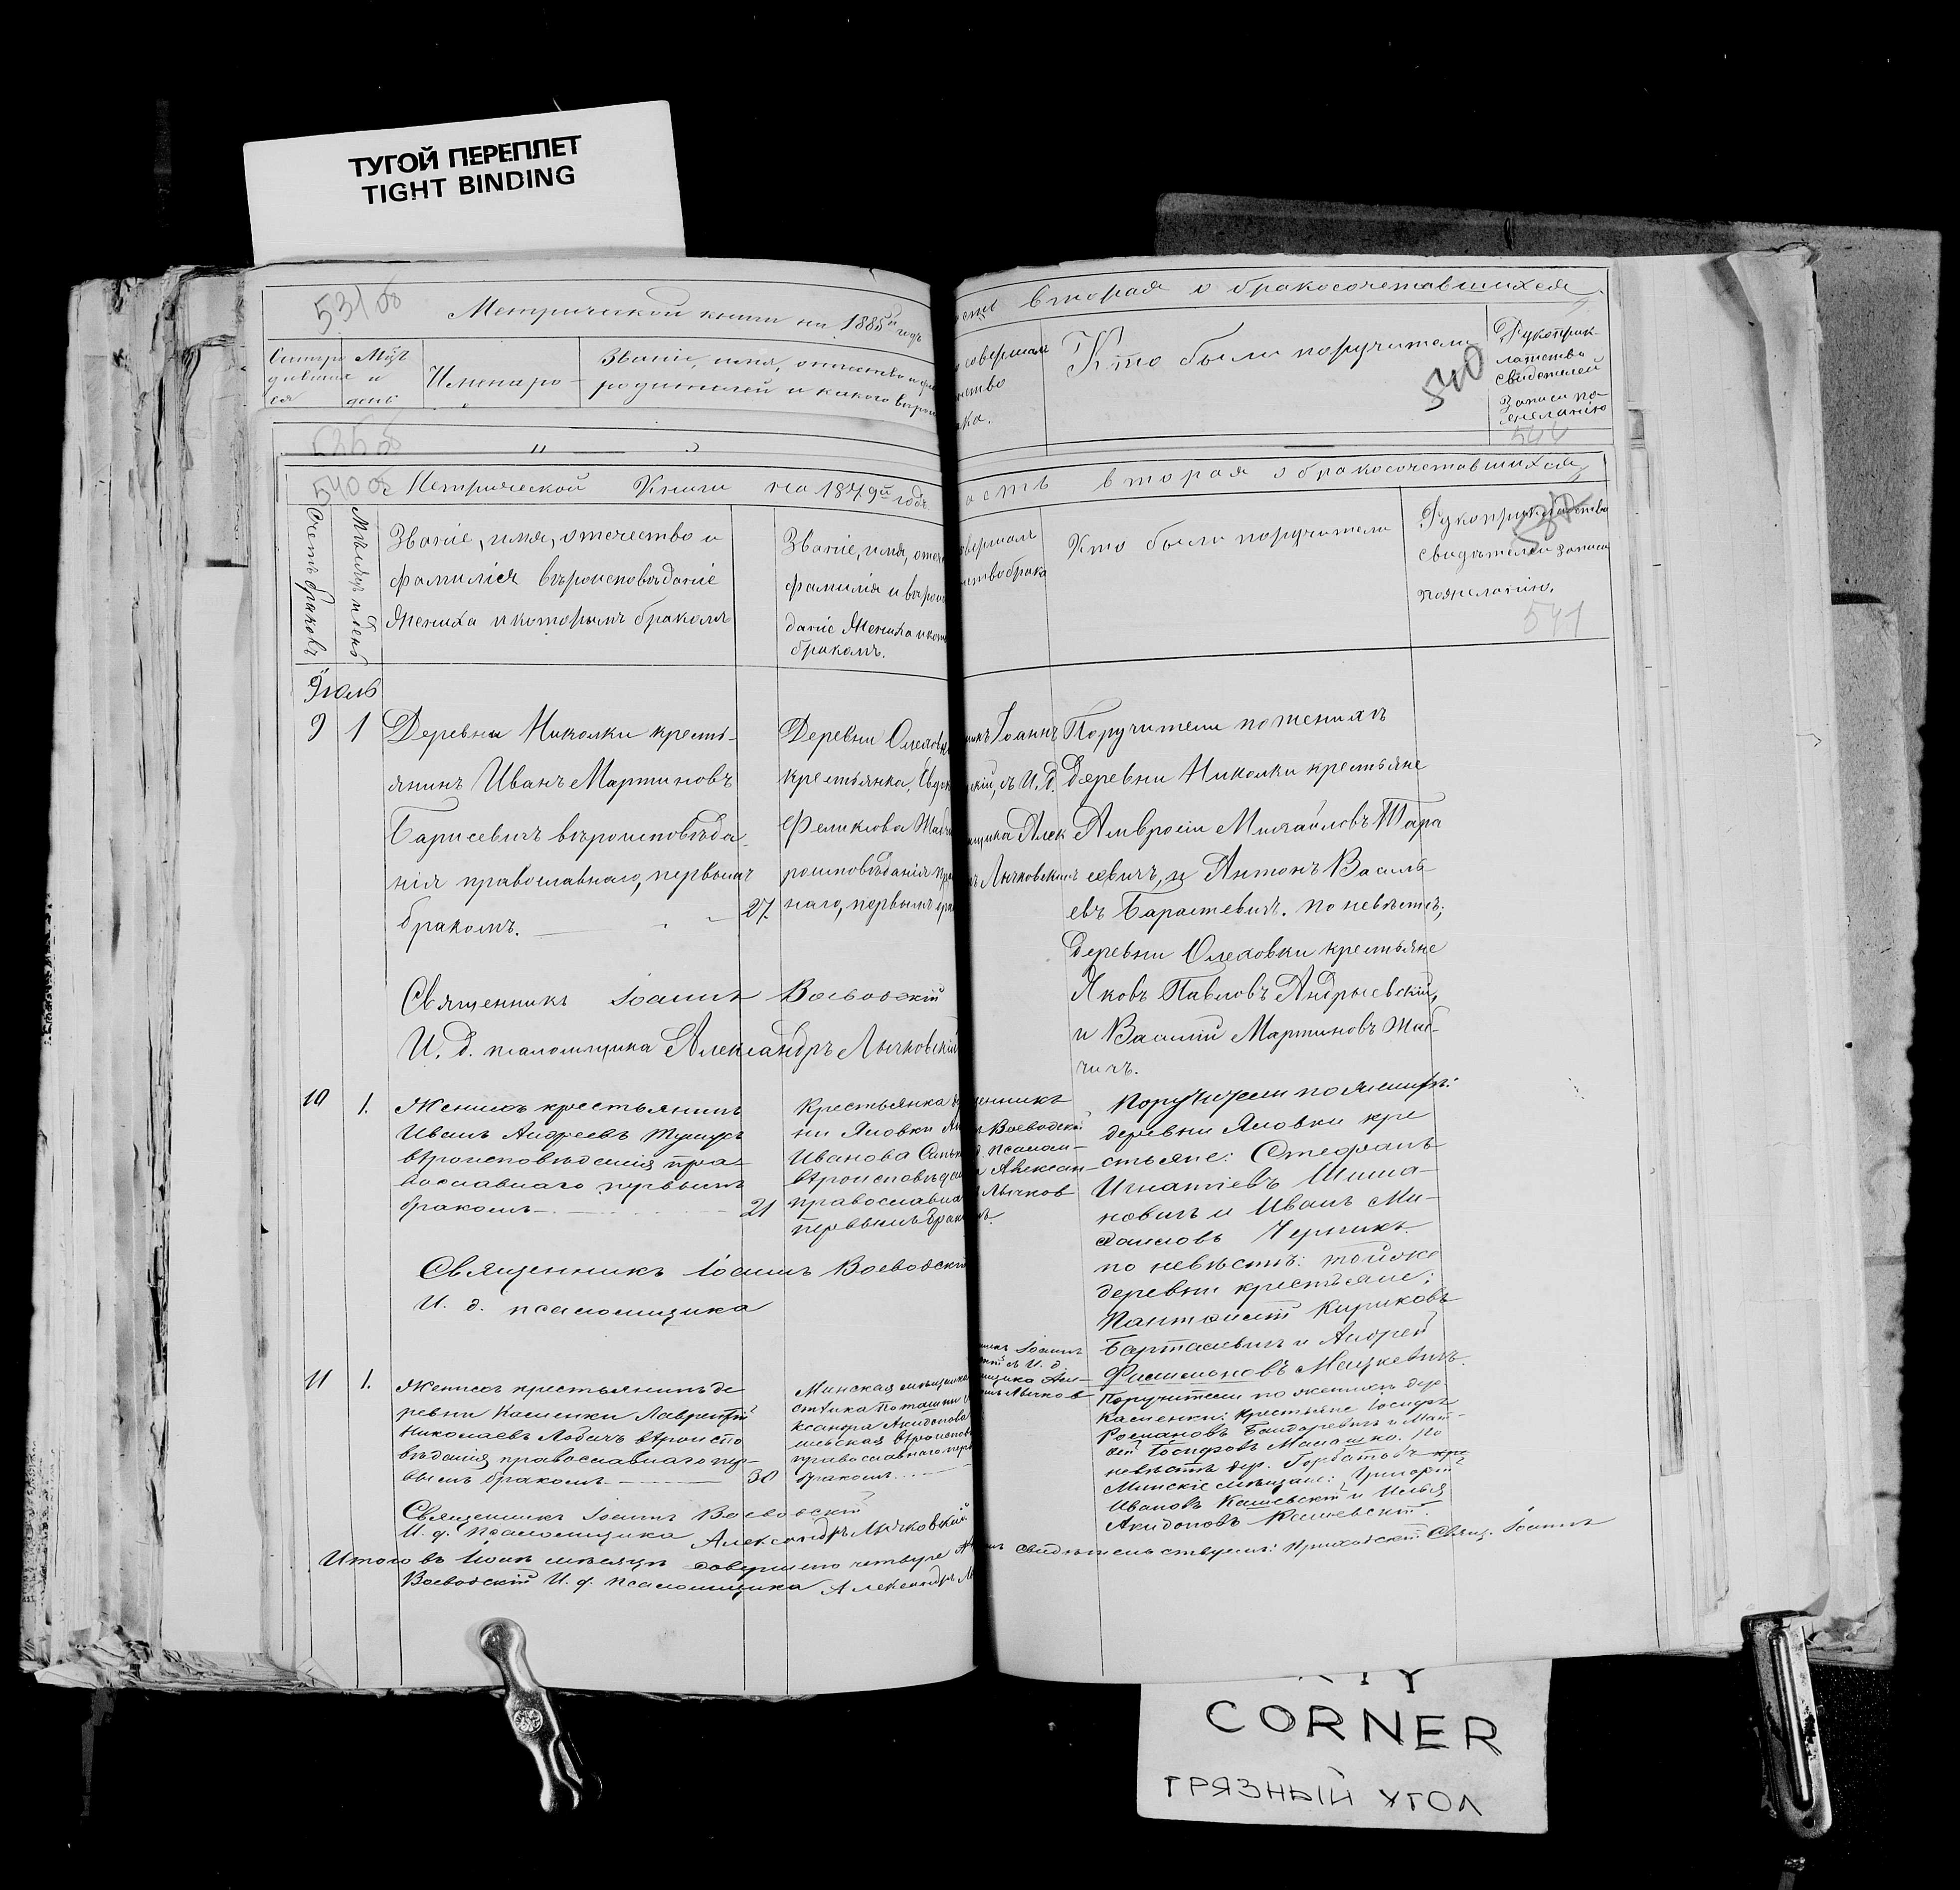 ТУГОЙ ПЕРЕПЛЕТ
TIGHT BINDING
531 об
Метрической книги на 1885й годъ
Мѣс
и
день
Звание, имя, отчество и
родителей и какого вѣро
сть вторая о бракосочетавшихся
совершалъ
Кто были поручители
540
Рукоприк-
ладство
свидетелей
записи по
желанію
540 об
Метрической Книги на 1879й годъ
Счетъ браковъ
Мѣсяцъ и день
Званіе, имя, отечество и
фамилія вѣроисповѣданіе
Жениха и которымъ бракомъ
Званіе, имя, отече
фамилія и вѣрои
даніе Жениха и кот
бракомъ.
асть вторая о бракосочетавшихся
овершалъ
нство брака
Кто были поручители
Рукоприкладство
свидѣтелей записи
по желанію.
541
Іюль
9 1
Деревни Николки кресть-
янинъ Иванъ Мартиновъ
Барисевичъ вѣроисповѣда-
нія православнаго, первымъ
бракомъ. 27.
Деревни Олеховк
крестьянка, Евд
Феликсова Жаб
роисповѣданія пра
наго, первымъ бра
никъ Іоаннъ
скій, съ И. д.
мщика Алек
ръ Лычковскимъ
Поручители по женихѣ
деревни Николки крестьяне
Амвросій Михайловъ Тара
севичъ, и Антонъ Василь-
евъ Барасевичъ. по невѣстѣ;
Деревни Олеховки крестьяне
Яковъ Павловъ Андрыевскій,
и Василій Мартиновъ Жаб-
чичъ.
Священникъ Іоаннъ Воеводскій
И. д. псаломщика Александръ Лычковскій
10 1.
Женихъ крестьянинъ
Иванъ Андреевъ
вѣроисповѣданія пра-
вославнаго первымъ
бракомъ 21
Крестьянка де
ни Яловки Ан
Иванова
вѣроисповѣда
православна
первымъ брак
щенникъ
Воеводскій
д. псалом-
Алексан-
Лычков
Поручители по женихѣ:
деревни Яловки кре
стьяне: Стефанъ
Игнатіевъ Шима-
новичъ и Иванъ Ми-
хаиловъ Черникъ
по невѣстѣ: той же
деревни крестьяне:
Кириковъ
Барташевичъ и Андрей
Филимоновъ Мацкевичъ.
Священникъ Іоаннъ Воеводскій
И. д. псаломщика
11 1.
Женихъ крестьянинъ де
ревни Каменки Лаврентій
Николаевъ Лобачъ вѣроиспо
вѣданія православнаго пер-
вымъ бракомъ 30
Минская мѣщанка
ксандра Акидонова
вѣроисповѣ
православнаго перв
бракомъ
никъ Іоаннъ
скій съ И. д.
мщика Але-
ръ Лычков
Поручители по женихѣ дер.
Каменки: крестьяне Іосифъ
Романовъ Бандаревичъ и Мат-
вей Іосифовъ Малашко. По
невѣстѣ дер. Горбатовъ кре
Минскіе мѣщане: Григорій
Ивановъ Кашевскій и Илья
Акидоновъ Кашевскій.
Священникъ Іоаннъ Воеводскій
И. д. Псаломщика Александръ Лычковскій
Итого въ Іюлѣ мѣсяцѣ совершено четыре
свидѣтельствуемъ: Приходскій Свящ. Іоаннъ
Воеводскій И. д. Псаломщика Александръ Л
CORNER
ГРЯЗНЫЙ УГОЛ